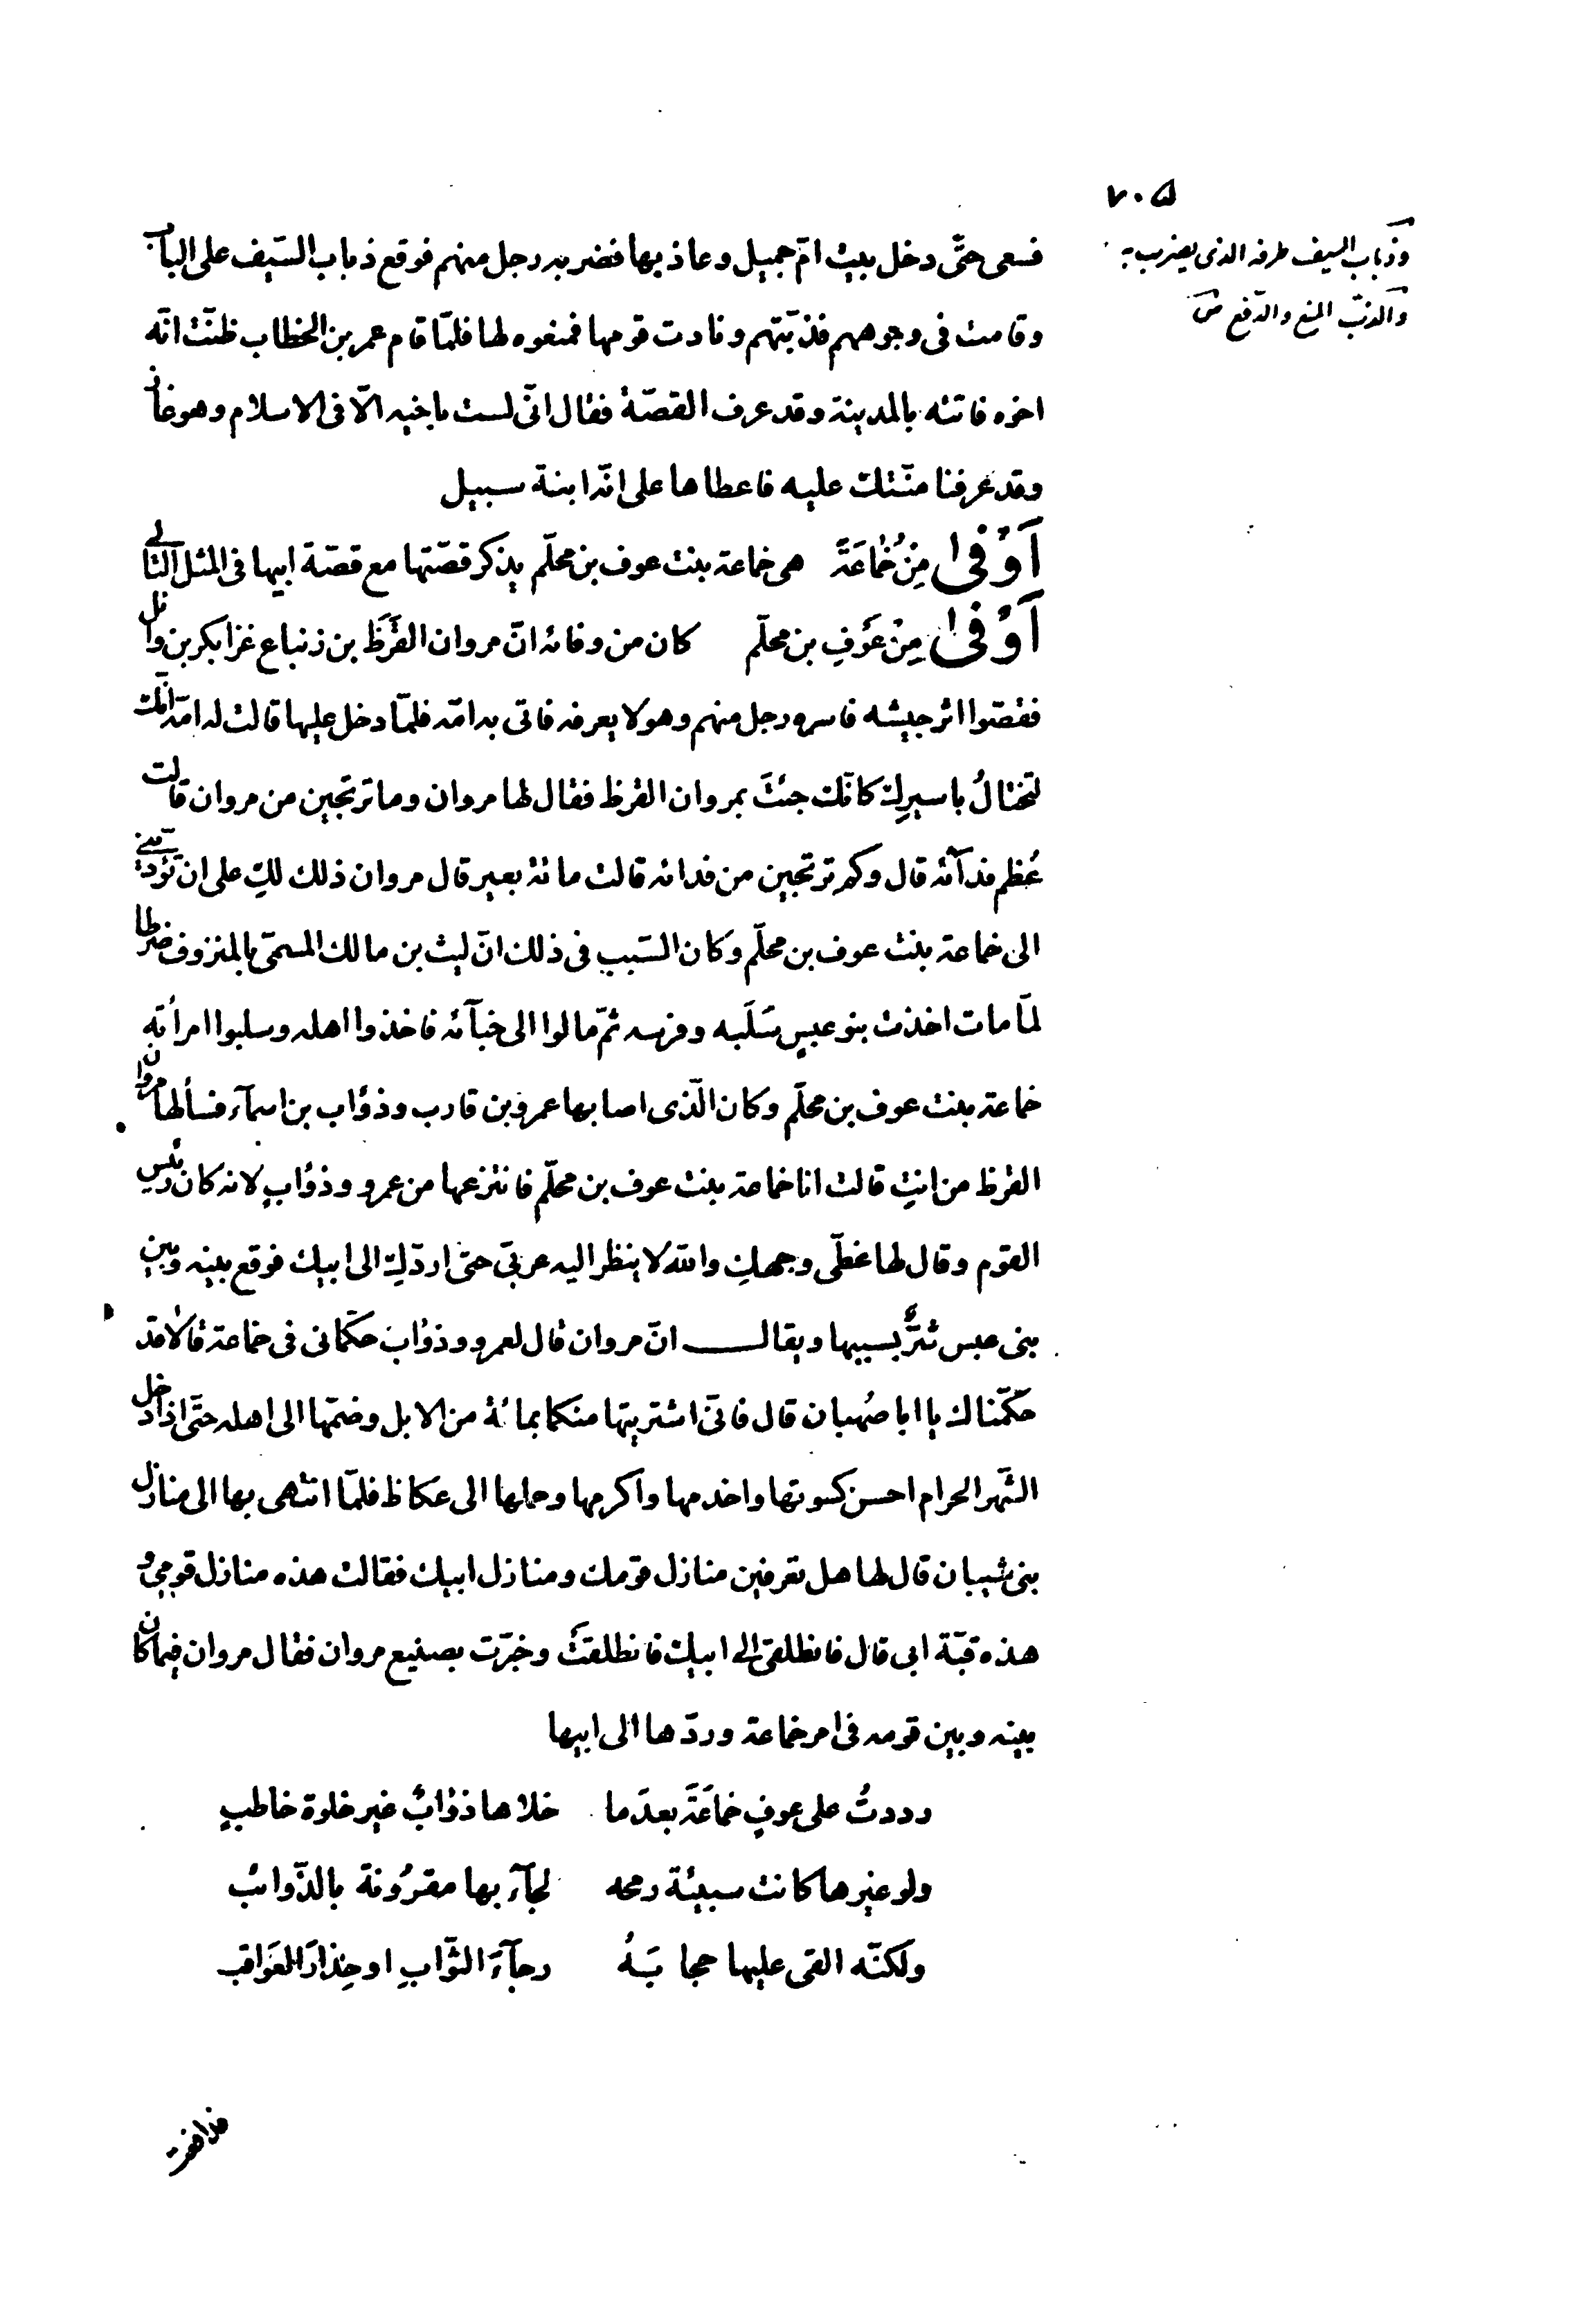 ٧٠٥
وذباب السيف طرفه الذى يضرب به
والذبّ المنع والدّفع ص
فسعى حتّى دخل بيت امّ جميل وعاذ بها فضربه رجل منهم فوقع ذباب السّيف على الباب
وقامت فى وجوههم فذبّتهم ونادت قومها فمنعوه لها فلمّا قام عمر بن الخطاب ظنّت انّه
اخوه فاتته بالمدينة وقد عرف القصّة فقال انّى لست باخيه الّا فى الاسلام وهو غاز
وقد عرفنا منّتك عليه فاعطاها على انّها ابنة سبيل
اَوْفىٰ مِنْ خُمَاعَةَ هى خماعة بنت عوف بن محلّم يذكر قصّتها مع قصّة ابيها فى المثل الثانى
اَوْفىٰ مِنْ عَوْفِ بن محلّم كان من وفائه انّ مروان القَرَظَ بن زنباع غزا بكر بن وائل
فقصّوا اثر جيشه فاسره رجل منهم وهو لا يعرفه فاتى به امّه فلمّا دخل عليها قالت له امّه انّك
لتختالُ باسيرك كانّك جئتَ بمروان القرظ فقال لها مروان وما ترتجين من مروان قالت
عُظم فدآئه قال وكم ترتجين من فدائه قالت مائة بعير قال مروان ذلك لكِ على ان تؤدّينى
الى خماعة بنت عوف بن محلّم وكان السّبب فى ذلك انّ ليث بن مالك المسمّى بالمنزوف ضرطا
لمّا مات اخذت بنو عبسٍ سَلَبه وفرسه ثمّ مالوا الى خبآئه فاخذوا اهله وسلبوا امرأته
خماعة بنت عوف بن محلّم وكان الّذى اصابها عمرو بن قارب وذؤاب بن اسمآء فسألها مروان
القرظ من انتِ قالت انا خماعة بنت عوف بن محلّم فانتزعها من عمرو وذؤابٍ لانه كان رئيس
القوم وقال لها غطّى وجهكِ والله لا ينظر اليه عربىّ حتى اردّكِ الى ابيك فوقع بينه وبين
بنى عبس شرٌّ بسببها ويقال انّ مروان قال لعمرو وذؤاب حكّمانى فى خماعة قالا قد
حكّمناك يا ابا صُهبان قال فانّى اشتريتها منكما بمائة من الابل وضمّها الى اهله حتّى اذا دخل
الشّهر الحرام احسن كسوتها واخدمها واكرمها وحملها الى عكاظ فلمّا انتهى بها الى منازل
بنى شيبان قال لها هل تعرفين منازل قومك ومنازل ابيك فقالت هذه منازل قومى و
هذه قبّة ابى قال فانطلقى الى ابيك فانطلقتْ وخبّرت بصنيع مروان فقال مروان فيما كان
بينه وبين قومه فى امر خماعة وردّها الى ابيها
رددتُ على عوفٍ خماعَةَ بعدَما خلاها ذؤابٌ غير خلوة خاطبٍ
ولو غيرها كانت سبيئة رمحه لجآء بها مقرُونة بالذّوائب
ولكنّه القى عليها حجابَهُ رجآءَ الثّوابِ او حِذارَ العَواقب